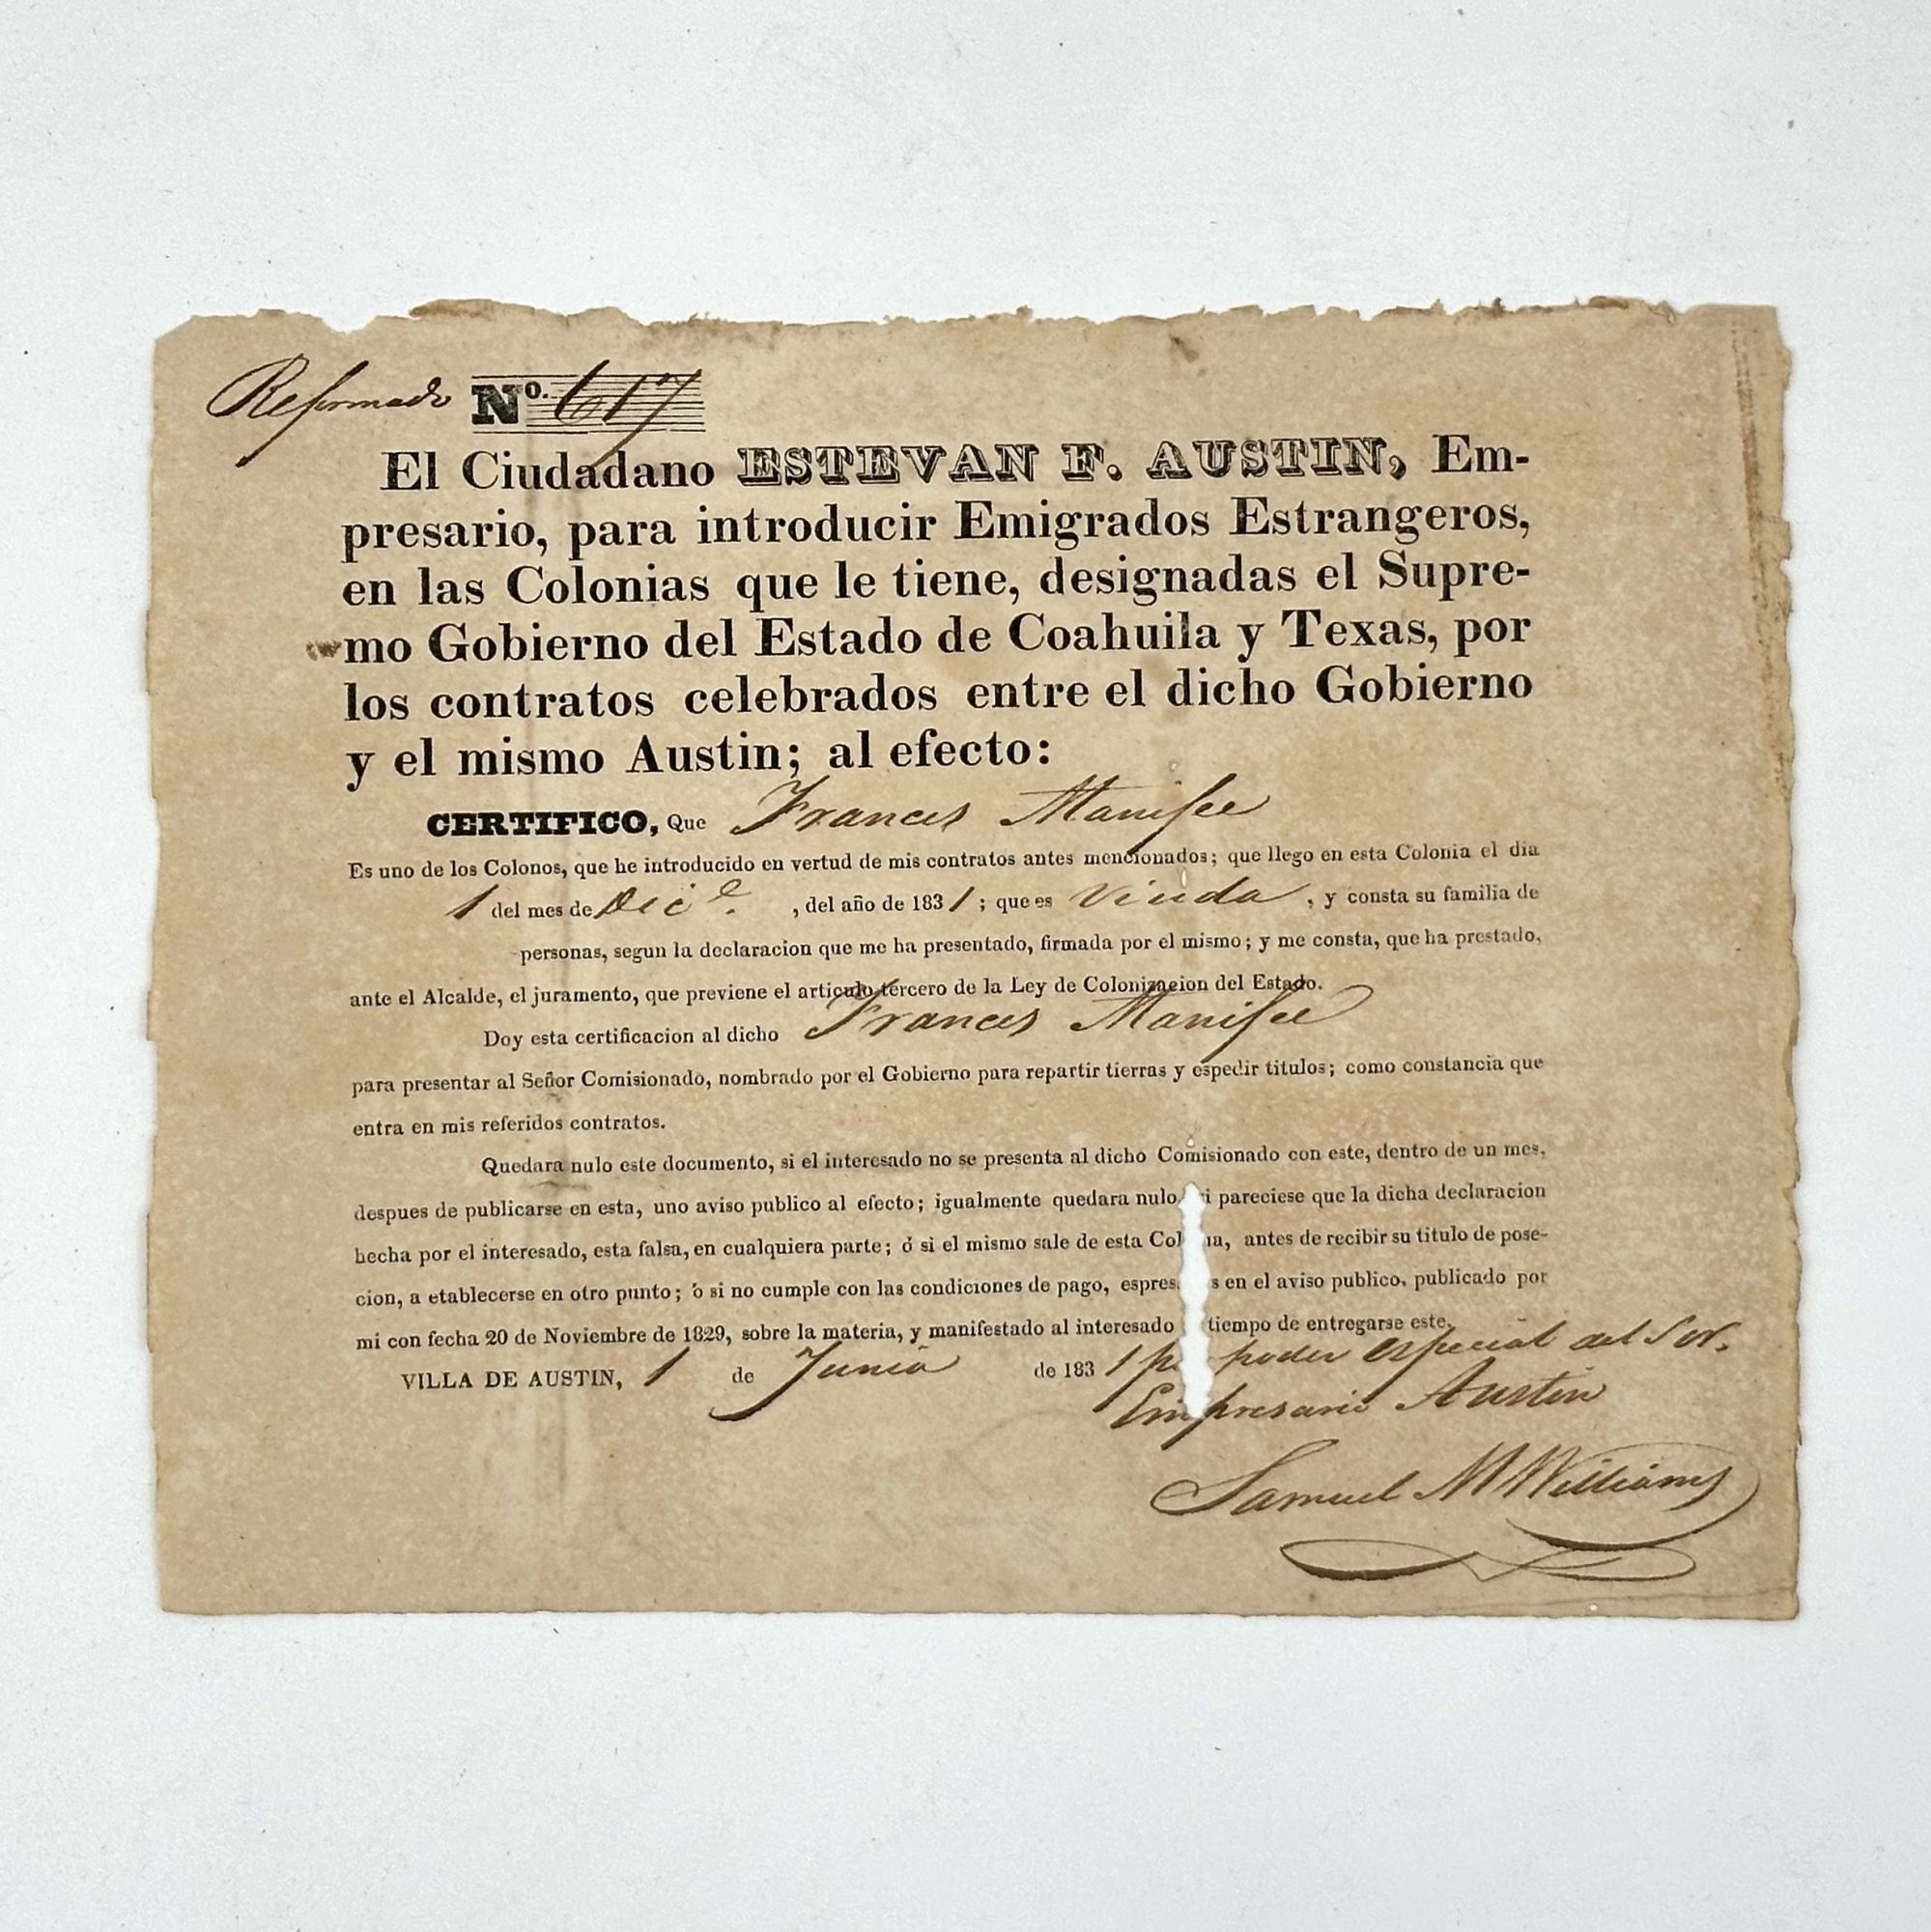 Reformado Nº. 617
El Ciudadano ESTEVAN F. AUSTIN, Em-
presario, para introducir Emigrados Estrangeros,
en las Colonias que le tiene, designadas el Supre-
mo Gobierno del Estado de Coahuila y Texas, por
los contratos celebrados entre el dicho Gobierno
y el mismo Austin; al efecto:
CERTIFICO, Que Frances Manifee
Es uno de los Colonos, que he introducido en vertud de mis contratos antes mencionados; que llego en esta Colonia el dia
1 del mes de Dice. , del año de 1831; que es Viuda, y consta su familia de
personas, segun la declaracion que me ha presentado, firmada por el mismo; y me consta, que ha prestado,
ante el Alcalde, el juramento, que previene el articulo tercero de la Ley de Colonizacion del Estado.
Doy esta certificacion al dicho Frances Manifee
para presentar al Señor Comisionado, nombrado por el Gobierno para repartir tierras y espedir titulos; como constancia que
entra en mis referidos contratos.
Quedara nulo este documento, si el interesado no se presenta al dicho Comisionado con este, dentro de un mes,
despues de publicarse en esta, uno aviso publico al efecto; igualmente quedara nulo, i pareciese que la dicha declaracion
hecha por el interesado, esta falsa, en cualquiera parte; ó si el mismo sale de esta Col na, antes de recibir su titulo de pose-
cion, a etablecerse en otro punto; ò si no cumple con las condiciones de pago, espres s en el aviso publico, publicado por
mi con fecha 20 de Noviembre de 1829, sobre la materia, y manifestado al interesado tiempo de entregarse este.
VILLA DE AUSTIN, 1 de Junio de 1831 p poder especial del Sor.
Empresario Austin
Samuel M Williams